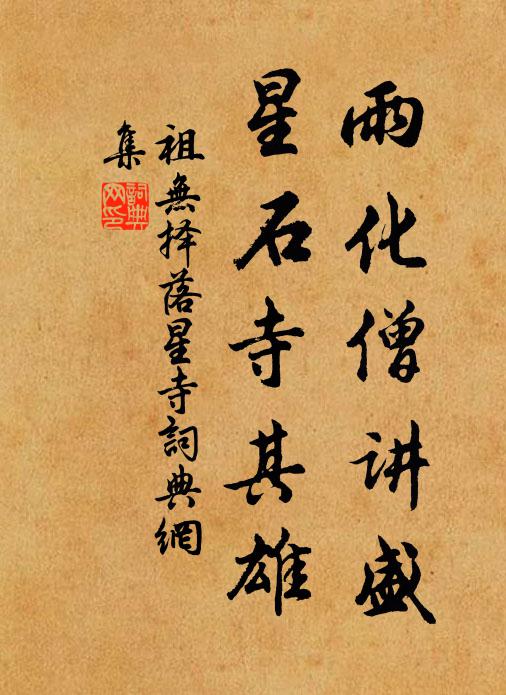 雨化僧讲盛
星石寺其雄
祖無择落星寺詞典網
集
詞典
网印